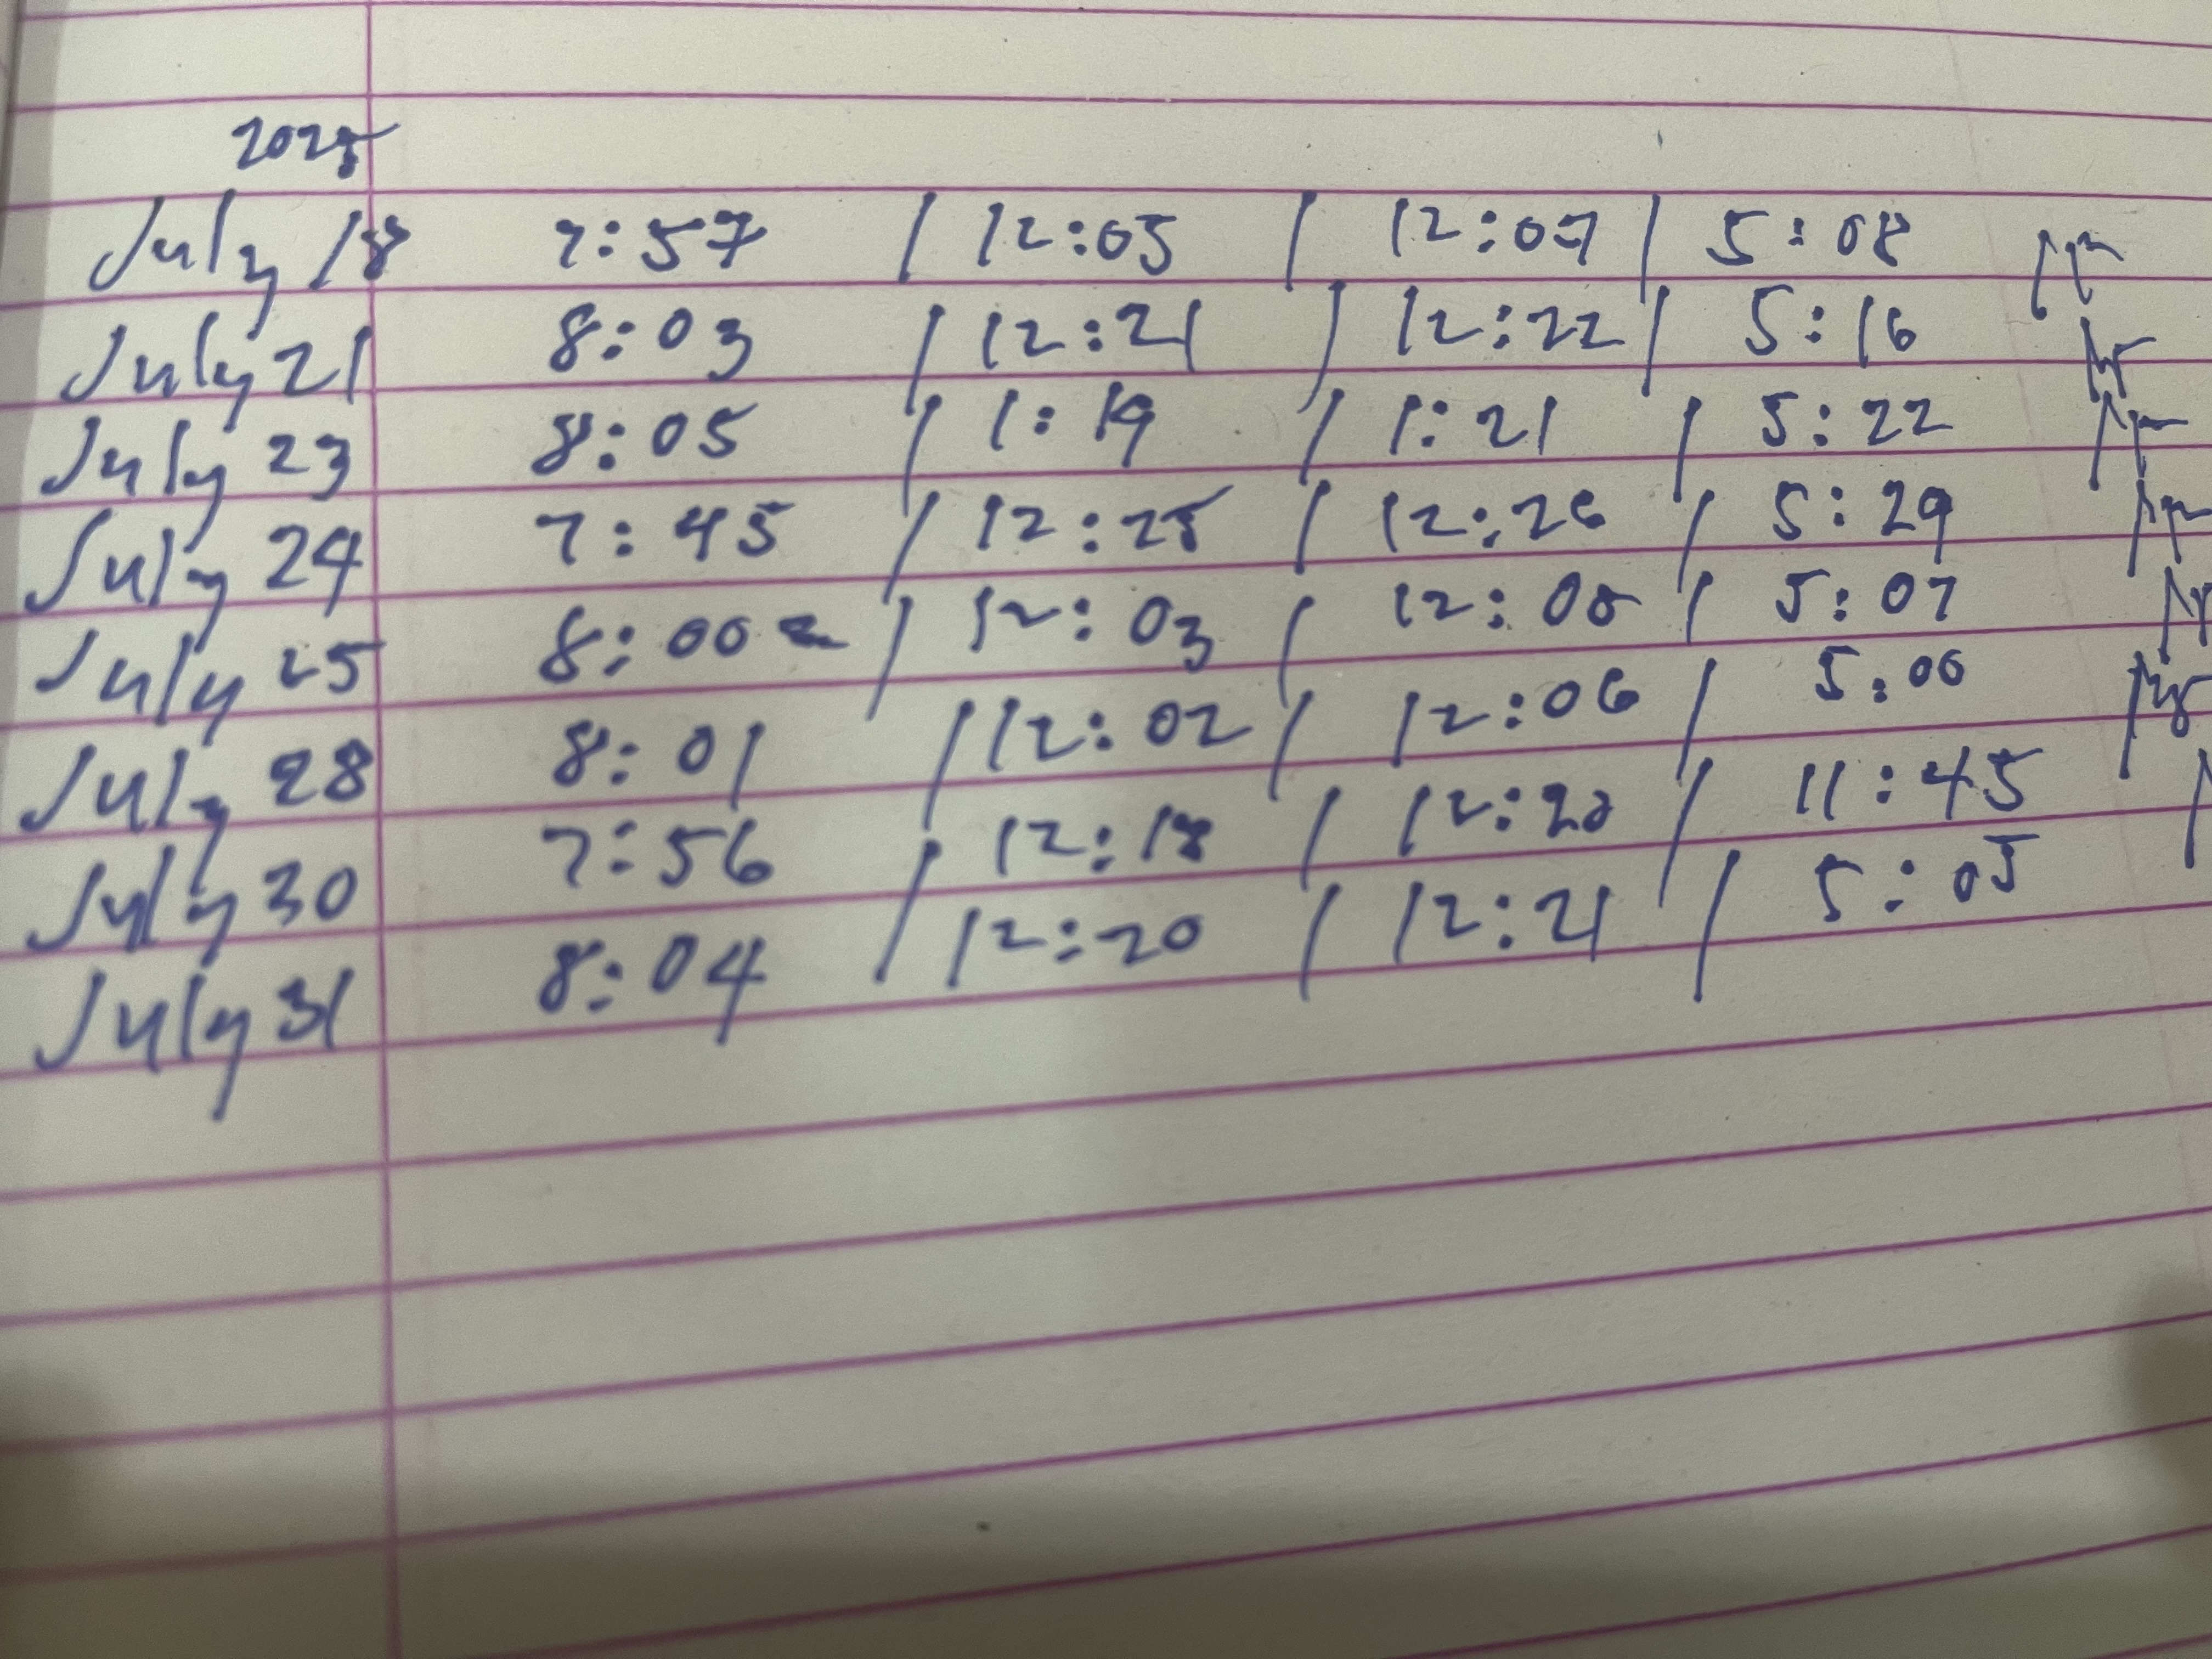 2025
July 18 7:57 / 12:05 / 12:07 / 5:08
July 21 8:03 / 12:21 / 12:22 / 5:16
July 23 8:05 / 1:19 / 1:21 / 5:22
July 24 7:45 / 12:25 / 12:26 / 5:29
July 25 8:00 / 12:03 / / 5:07
July 28 8:01 / 12:02 / 12:06 / 5:00
July 30 7:56 / 12:18 / 12:20 / 11:45
July 31 8:04 / 12:20 / 12:21 / 5:05